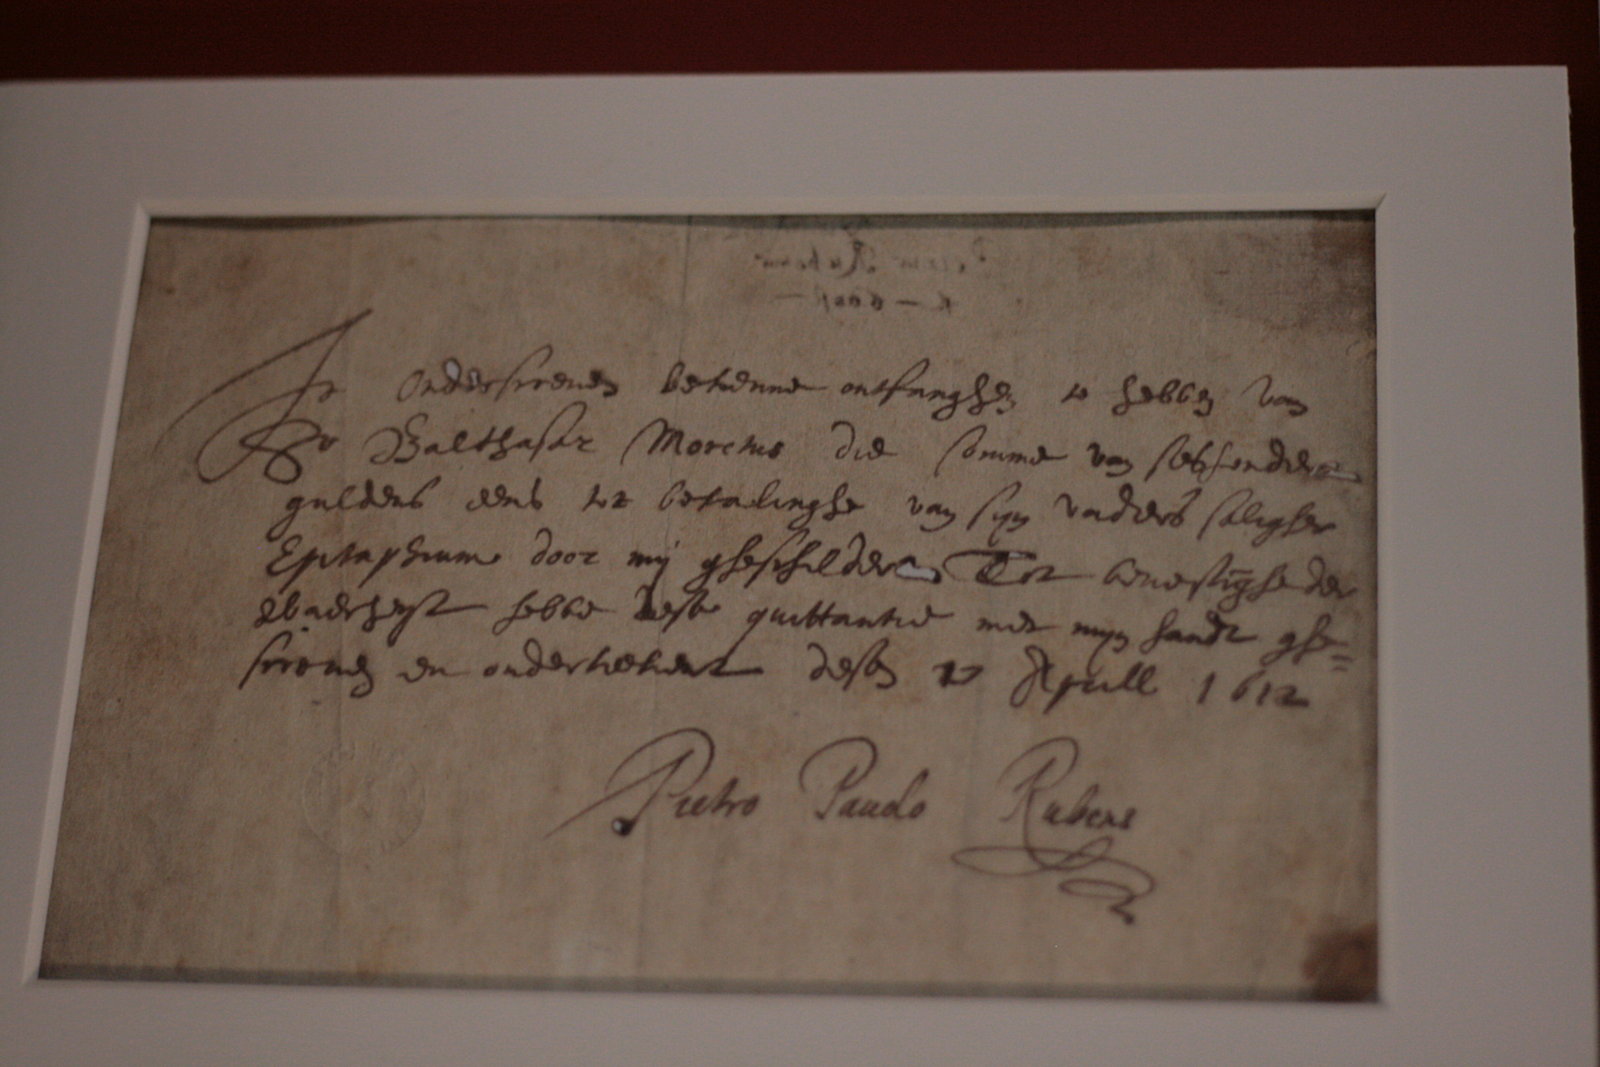 Ic onderscreven bekenne ontfanghen te hebben van
Sr Balthasar Moretus die somme van seshondert
guldens eens tot betalinghe van syn vaders saligher
Epitaphium door mij gheschildert Tot bevestinghe der
Waerheyt hebbe dese quittantie met myn handt ghe=
screven en onderteekent desen 27 April 1612
Pietro Pauolo Rubens